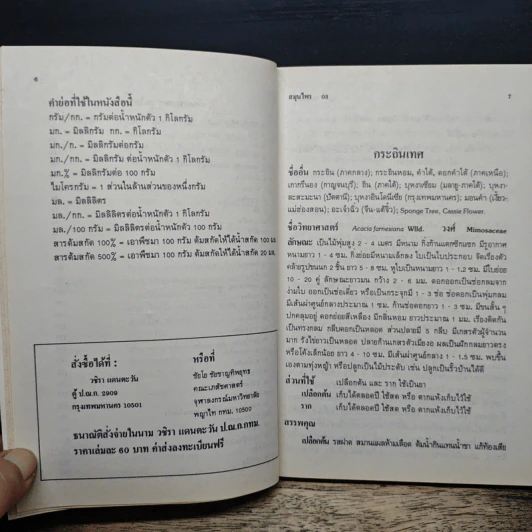 6
คำย่อที่ใช้ในหนังสือนี้
กรัม/กก. = กรัมต่อน้ำหนักตัว 1 กิโลกรัม
มก. = มิลลิกรัม กก. = กิโลกรัม
มก./ก. = มิลลิกรัมต่อกรัม
มก./กก. = มิลลิกรัม ต่อน้ำหนักตัว 1 กิโลกรัม
มก.% = มิลลิกรัมต่อ 100 กรัม
ไมโครกรัม = 1 ส่วนในล้านส่วนของหนึ่งกรัม
มล. = มิลลิลิตร
มล./กก. = มิลลิลิตรต่อน้ำหนักตัว 1 กิโลกรัม
มล./100 กรัม = มิลลิลิตรต่อน้ำหนักตัว 100 กรัม
สารต้มสกัด 100% = เอาพืชมา 100 กรัม ต้มสกัดให้ได้น้ำสกัด 100 มล.
สารต้มสกัด 500% = เอาพืชมา 100 กรัม ต้มสกัดให้ได้น้ำสกัด 20 มล.
สั่งซื้อได้ที่ :
วชิรา แดนตะวัน
ตู้ ป.ณ.ก. 2909
กรุงเทพมหานคร 10501
หรือที่
ชัยโย ชัยชาญทิพยุทธ
คณะเภสัชศาสตร์
จุฬาลงกรณ์มหาวิทยาลัย
พญาไท กทม. 10500
ธนาณัติสั่งจ่ายในนาม วชิรา แดนตะวัน ป.ณ.ก.กทม.
ราคาเล่มละ 60 บาท ค่าส่งลงทะเบียนฟรี
สมุนไพร 03
7
กระถินเทศ
ชื่ออื่น กระถิน (ภาคกลาง); กระถินหอม, คำใต้, ดอกคำใต้ (ภาคเหนือ);
เกากรึนอง (กาญจนบุรี); ถิน (ภาคใต้); บุหงาเซียม (มลายู-ภาคใต้); บุหงา-
ละสะมะนา (ปัตตานี); บุหงาอินโดนีเซีย (กรุงเทพมหานคร); มอนคำ (เงี้ยว-
แม่ฮ่องสอน); อะเจ๋าฉิ่ว (จีน-แต้จิ๋ว); Sponge Tree, Cassie Flower.
ชื่อวิทยาศาสตร์ Acacia farnesiana Willd. วงศ์ Mimosaceae
ลักษณะ เป็นไม้พุ่มสูง 2 - 4 เมตร มีหนาม กิ่งก้านแตกซิกแซก มีรูอากาศ
หนามยาว 1 - 4 ซม. กิ่งย่อยมีหนามเล็กลง ใบเป็นใบประกอบ จัดเรียงตัว
คล้ายรูปขนนก 2 ชั้น ยาว 5 - 8 ซม. หูใบเป็นหนามยาว 1 - 1.2 ซม. มีใบย่อย
10 - 20 คู่ กว้าง 1 มม. ยาว 2 - 6 มม. ดอกออกเป็นช่อกลมจาก
ง่ามใบ ออกเป็นช่อเดี่ยว หรือเป็นกระจุกมี 1 - 3 ช่อ ช่อดอกเป็นพุ่มกลม
มีเส้นผ่าศูนย์กลางประมาณ 1 ซม. ก้านช่อดอกยาว 1 - 3 ซม. มีขนสั้นๆ
ปกคลุมอยู่ ดอกย่อยสีเหลือง มีกลิ่นหอม ยาวประมาณ 1 มม. เรียงติดกัน
เป็นทรงกลม กลีบดอกเป็นหลอด ส่วนปลายมี 5 กลีบ มีเกสรตัวผู้จำนวน
มาก รังไข่ยาวเป็นหลอด ปลายก้านเกสรตัวเมียงอ ผลเป็นฝักกลมยาวตรง
หรือโค้งเล็กน้อย ยาว 4 - 10 ซม. มีเส้นผ่าศูนย์กลาง 1 - 1.5 ซม. พบขึ้น
เองตามทุ่งหญ้า หรือปลูกเป็นไม้ประดับ เช่น ปลูกเป็นรั้วบ้านได้ดี
ส่วนที่ใช้ เปลือกต้น และ ราก ใช้เป็นยา
เปลือกต้น เก็บได้ตลอดปี ใช้สด หรือ ตากแห้งเก็บไว้ใช้
ราก เก็บได้ตลอดปี ใช้สด หรือ ตากแห้งเก็บไว้ใช้
สรรพคุณ
เปลือกต้น รสฝาด สมานแผลห้ามเลือด ต้มน้ำกินแทนน้ำชา แก้ท้องเสีย